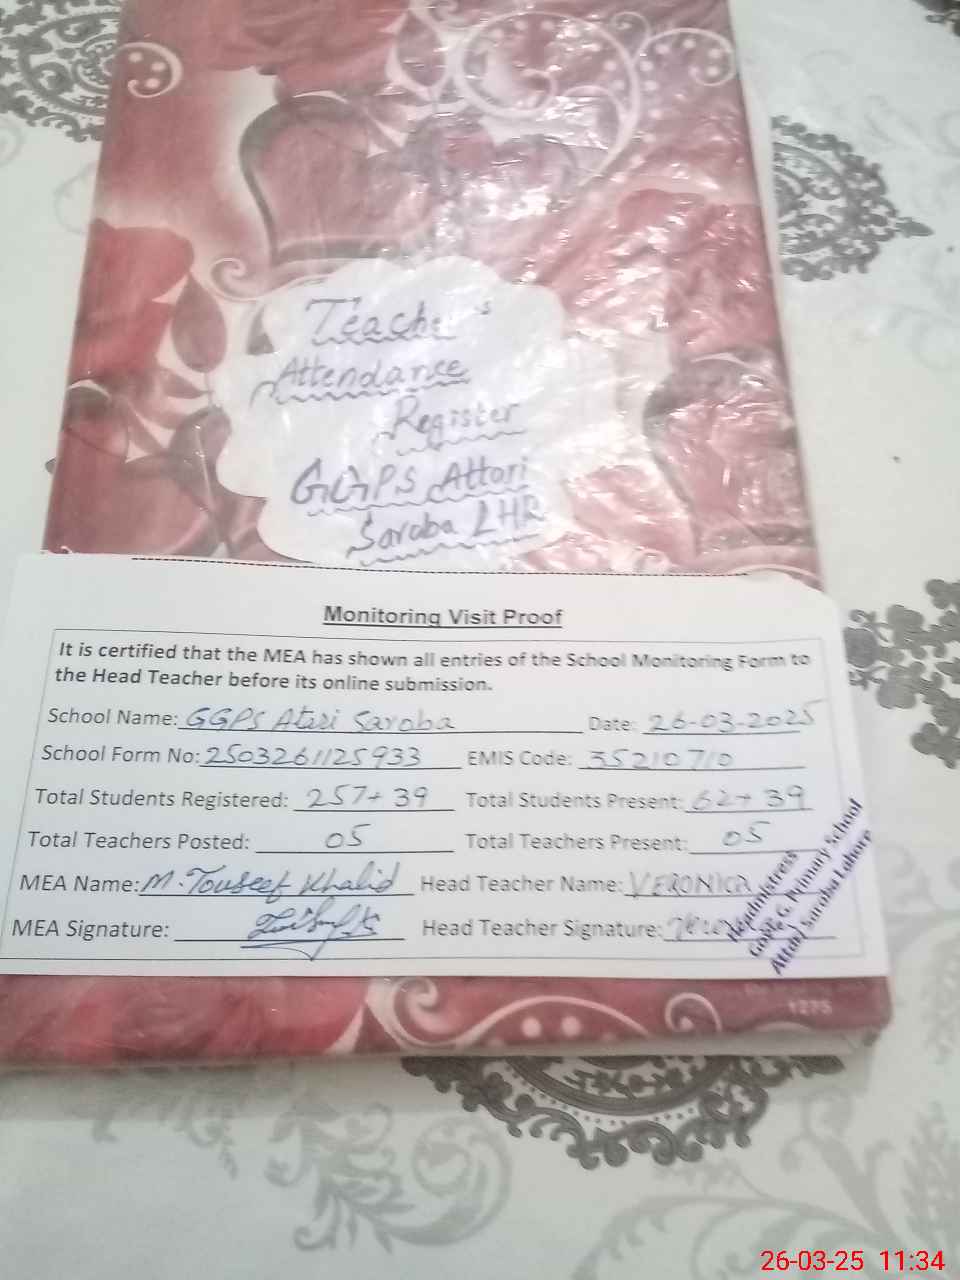 Teacher's
Attendance
Register
GGPS Attari
Saroba LHR
Monitoring Visit Proof
It is certified that the MEA has shown all entries of the School Monitoring Form to
the Head Teacher before its online submission.
School Name: GGPS Atari Saroba Date: 26-03-2025
School Form No: 2503261125933 EMIS Code: 35210710
Total Students Registered: 257+39 Total Students Present: 62+39
Total Teachers Posted: 05 Total Teachers Present: 05
MEA Name: M. Touseef Khalid Head Teacher Name: VERONICA
MEA Signature: Head Teacher Signature:
Headmistress
Govt. G. Primary School
Attari Saroba Lahore
1275
26-03-25 11:34